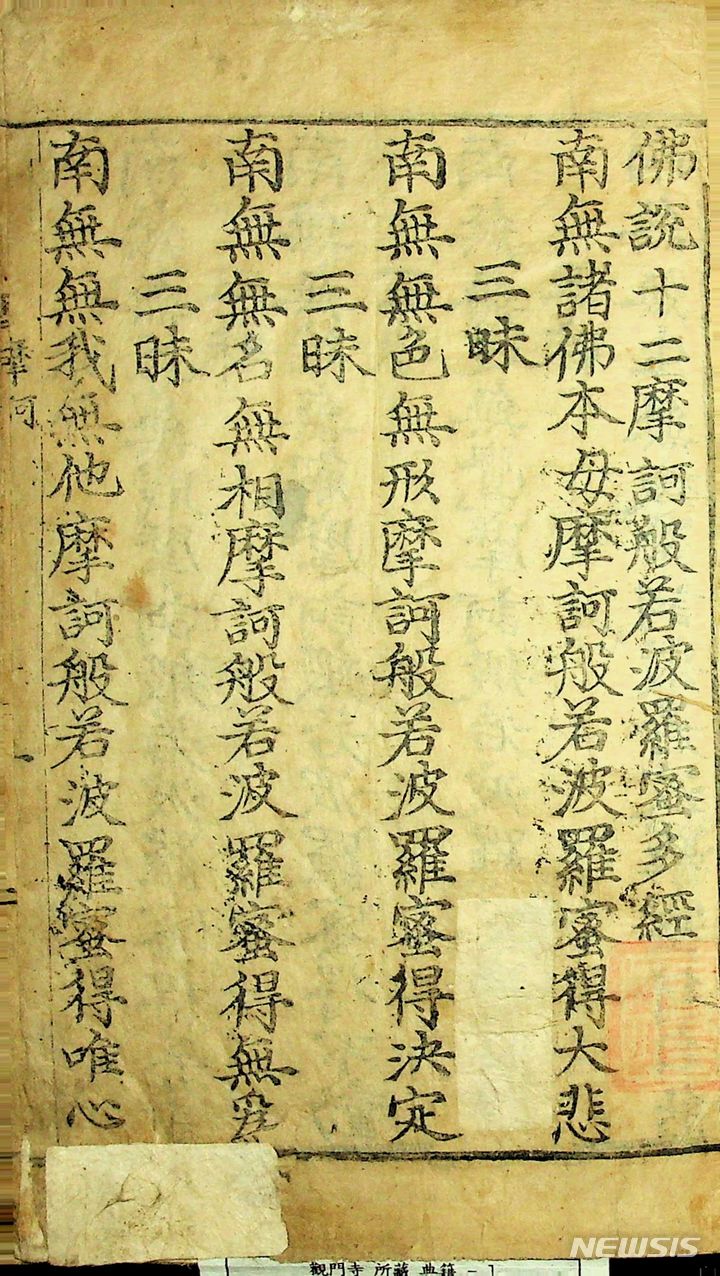 佛說十二摩訶般若波羅蜜多經
南無諸佛本母摩訶般若波羅蜜得大悲
三昧
南無無色無形摩訶般若波羅蜜得決定
三昧
南無無名無相摩訶般若波羅蜜得無爭
三昧
南無無我無他摩訶般若波羅蜜得唯心
摩訶
觀門寺 所藏 典籍 - 1
NEWSIS